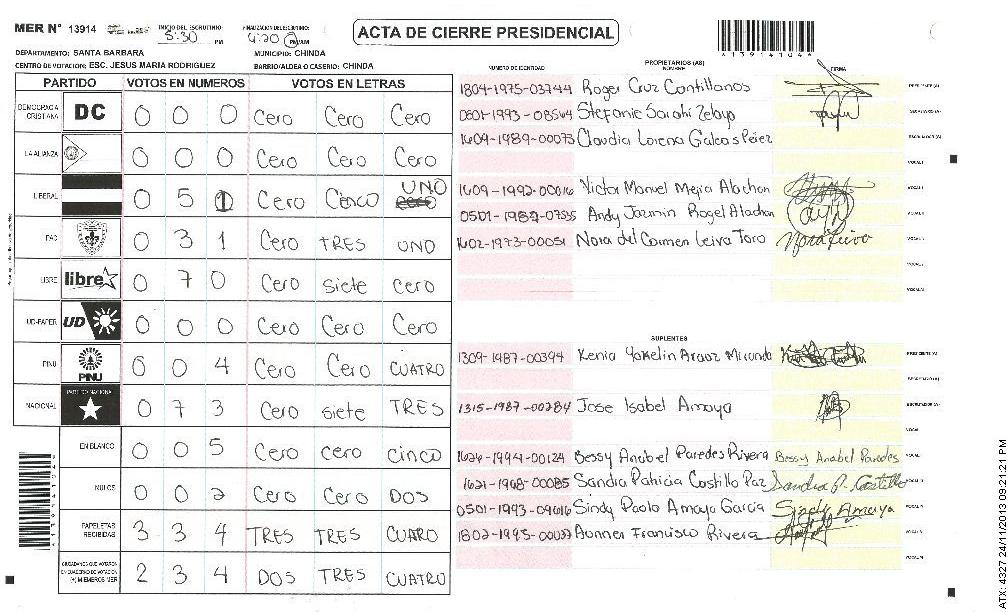 MER N° 13914
INICIO DEL ESCRUTINIO: 5:30 PM
FINALIZACION DEL ESCRUTINIO: 4:20 PM/AM
ACTA DE CIERRE PRESIDENCIAL
A139141044
DEPARTAMENTO: SANTA BARBARA
MUNICIPIO: CHINDA
CENTRO DE VOTACION: ESC. JESUS MARIA RODRIGUEZ
BARRIO/ALDEA O CASERIO: CHINDA
PARTIDO VOTOS EN NUMEROS VOTOS EN LETRAS
DEMOCRACIA CRISTIANA DC 0 0 0 Cero Cero Cero
LA ALIANZA 0 0 0 Cero Cero Cero
LIBERAL 0 5 1 Cero Cinco UNO
PAC 0 3 1 Cero TRES UNO
LIBRE libre 0 7 0 Cero siete cero
UD-FAPER UD 0 0 0 Cero Cero Cero
PINU PINU 0 0 4 Cero Cero CUATRO
NACIONAL PARTIDO NACIONAL 0 7 3 Cero siete TRES
EN BLANCO 0 0 5 Cero cero cinco
NULOS 0 0 2 Cero Cero DOS
PAPELETAS RECIBIDAS 3 3 4 TRES TRES CUARO
CIUDADANOS QUE VOTARON EN CUADERNO DE VOTACION (+) MIEMBROS MER 2 3 4 DOS TRES CUATRO
PROPIETARIOS (AS)
NUMERO DE IDENTIDAD NOMBRE FIRMA
1804-1975-03744 Roger Cruz Cantillanos PRESIDENTE (A)
0801-1993-08564 Stefanie Sarahi Zelaya SECRETARIO (A)
1609-1989-00073 Claudia Lorena Galeas Pérez ESCRUTADOR (A)
VOCAL I
1609-1992-00016 Victor Manuel Mejia Alachan VOCAL II
0501-1982-07535 Andy Jazmin Rogel Alachan VOCAL III
1602-1973-00051 Nora del Carmen Leiva Toro Nora Leiva
SUPLENTES
1309-1987-00394 Kenia Yakelin Arauz Miranda PRESIDENTE (A)
SECRETARIO (A)
1315-1987-00284 Jose Isabel Amaya ESCRUTADOR (A)
VOCAL
1624-1994-00124 Bessy Anabel Paredes Rivera Bessy Anabel Paredes
1621-1968-00085 Sandra Patricia Castillo Paz Sandra P. Castillo
0501-1993-09616 Sindy Paola Amaya Garcia Sindy Amaya
Aunner Francisco Rivera
ATX: 4327 24/11/2013 09:21:21 PM